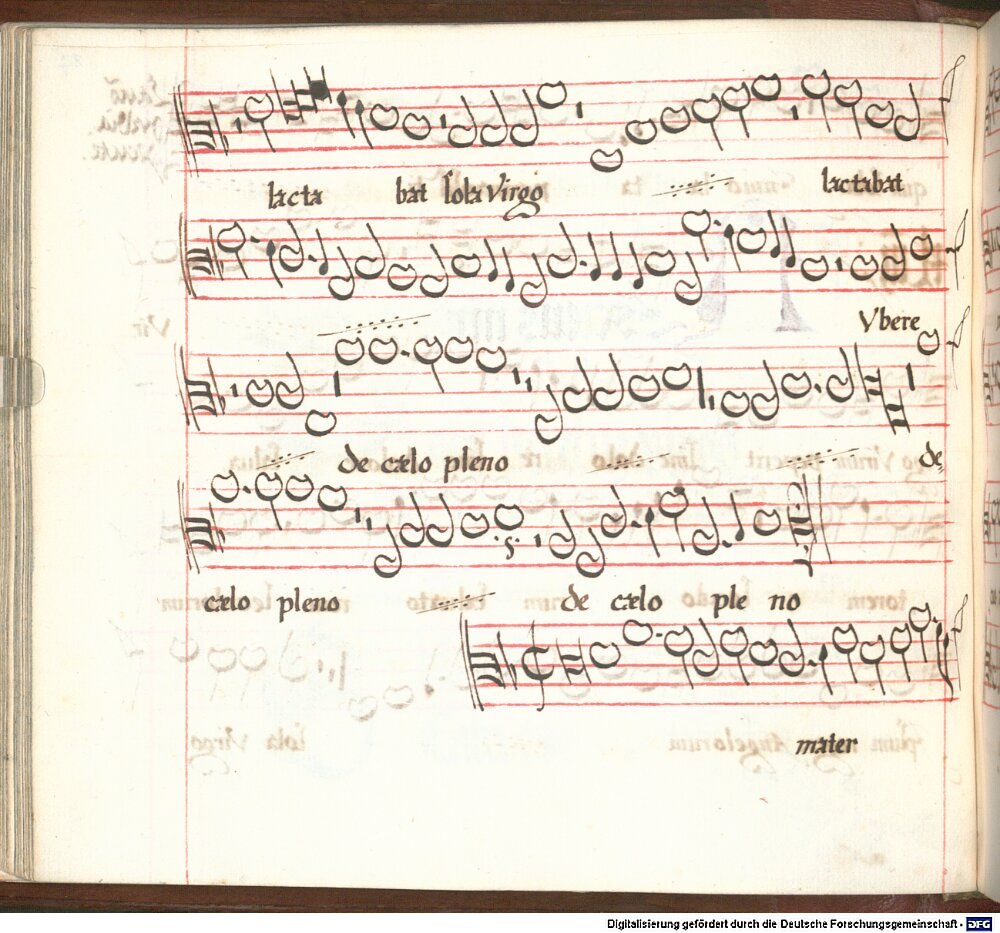 lacta bat sola Virgo lactabat
Vbere
de cælo pleno de
cælo pleno de cælo ple no
mater
Digitalisierung gefördert durch die Deutsche Forschungsgemeinschaft - DFG